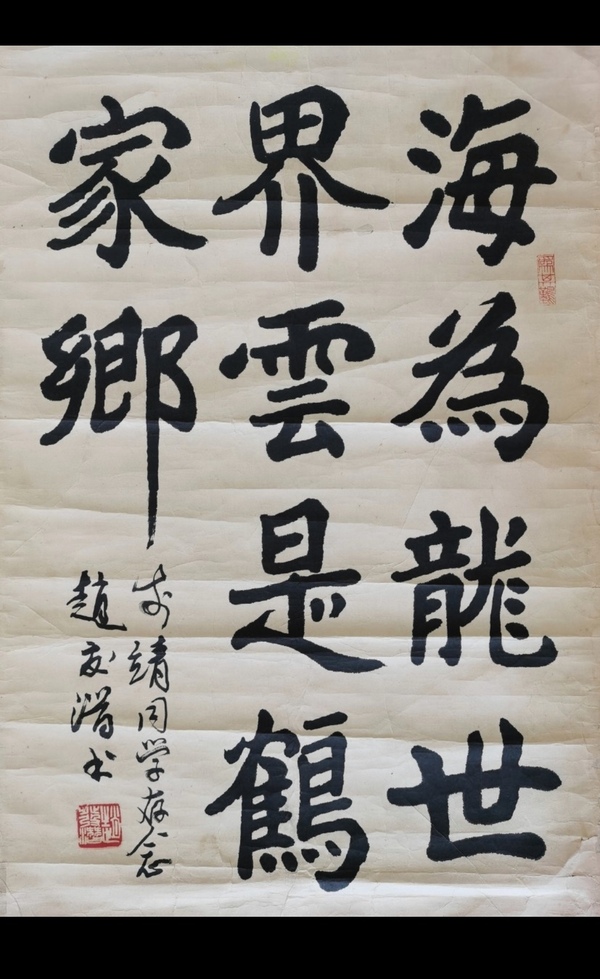 海為龍世
界雲是鶴
家鄉
靖同学存念
趙发潛书